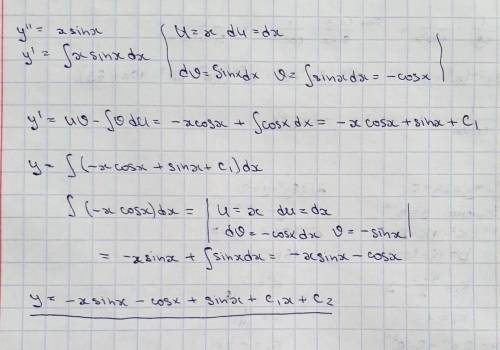 y'' = x sinx
y' = ∫x sinx dx | U = x du = dx
dϑ = sinxdx ϑ = ∫sinxdx = -cosx |
y' = Uϑ - ∫ϑ du = -xcosx + ∫cosx dx = -x cosx + sinx + C₁
y = ∫(-x cosx + sinx + C₁)dx
∫(-x cosx)dx = | U = x du = dx
dϑ = -cosx dx ϑ = -sinx |
= -x sinx + ∫sinxdx = -x sinx - cosx
y = -x sinx - cosx + sinx + C₁x + C₂